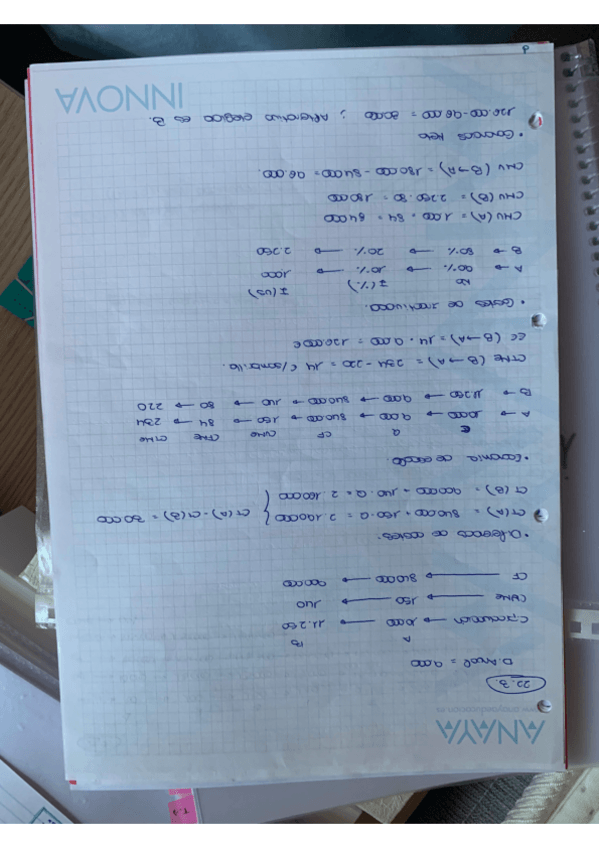 ANAYA
www.anayaeducacion.es
22.3.
D. Anual = 9.000
A B
C producción → 10.000 → 11.250
CVMe → 150 → 140
CF → 840.000 → 900.000
• Diferencia de costes.
CT (A) = 840.000 + 150·Q = 2.190.000
CT (B) = 900.000 + 140·Q = 2.160.000 } CT(A) - CT(B) = 30.000
• Economía de escala.
C Q CF CVMe CFMe CTMe
A → 10.000 → 9.000 → 840.000 → 150 → 84 → 234
B → 11.250 → 9.000 → 900.000 → 140 → 80 → 220
CTMe (B→A) = 234 - 220 = 14 €/sombrilla.
EE (B→A) = 14 · 9.000 = 126.000€
• Costes de inactividad.
I (%) I (us)
A → 90% → 10% → 1.000
B → 80% → 20% → 2.250
CNU (A) = 1.000 · 84 = 84.000
CNU (B) = 2.250 · 80 = 180.000
CNU (B→A) = 180.000 - 84.000 = 96.000.
• Economías Neto
126.000 - 96.000 = 30.000 ; Alternativa elegida es B.
INNOVA